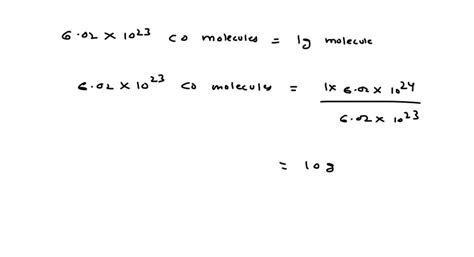 6.02 × 10²³ CO molecules = 1g molecule
6.02 × 10²³ CO molecules = 1× 6.02 × 10²⁴ / 6.02 × 10²³
= 10g